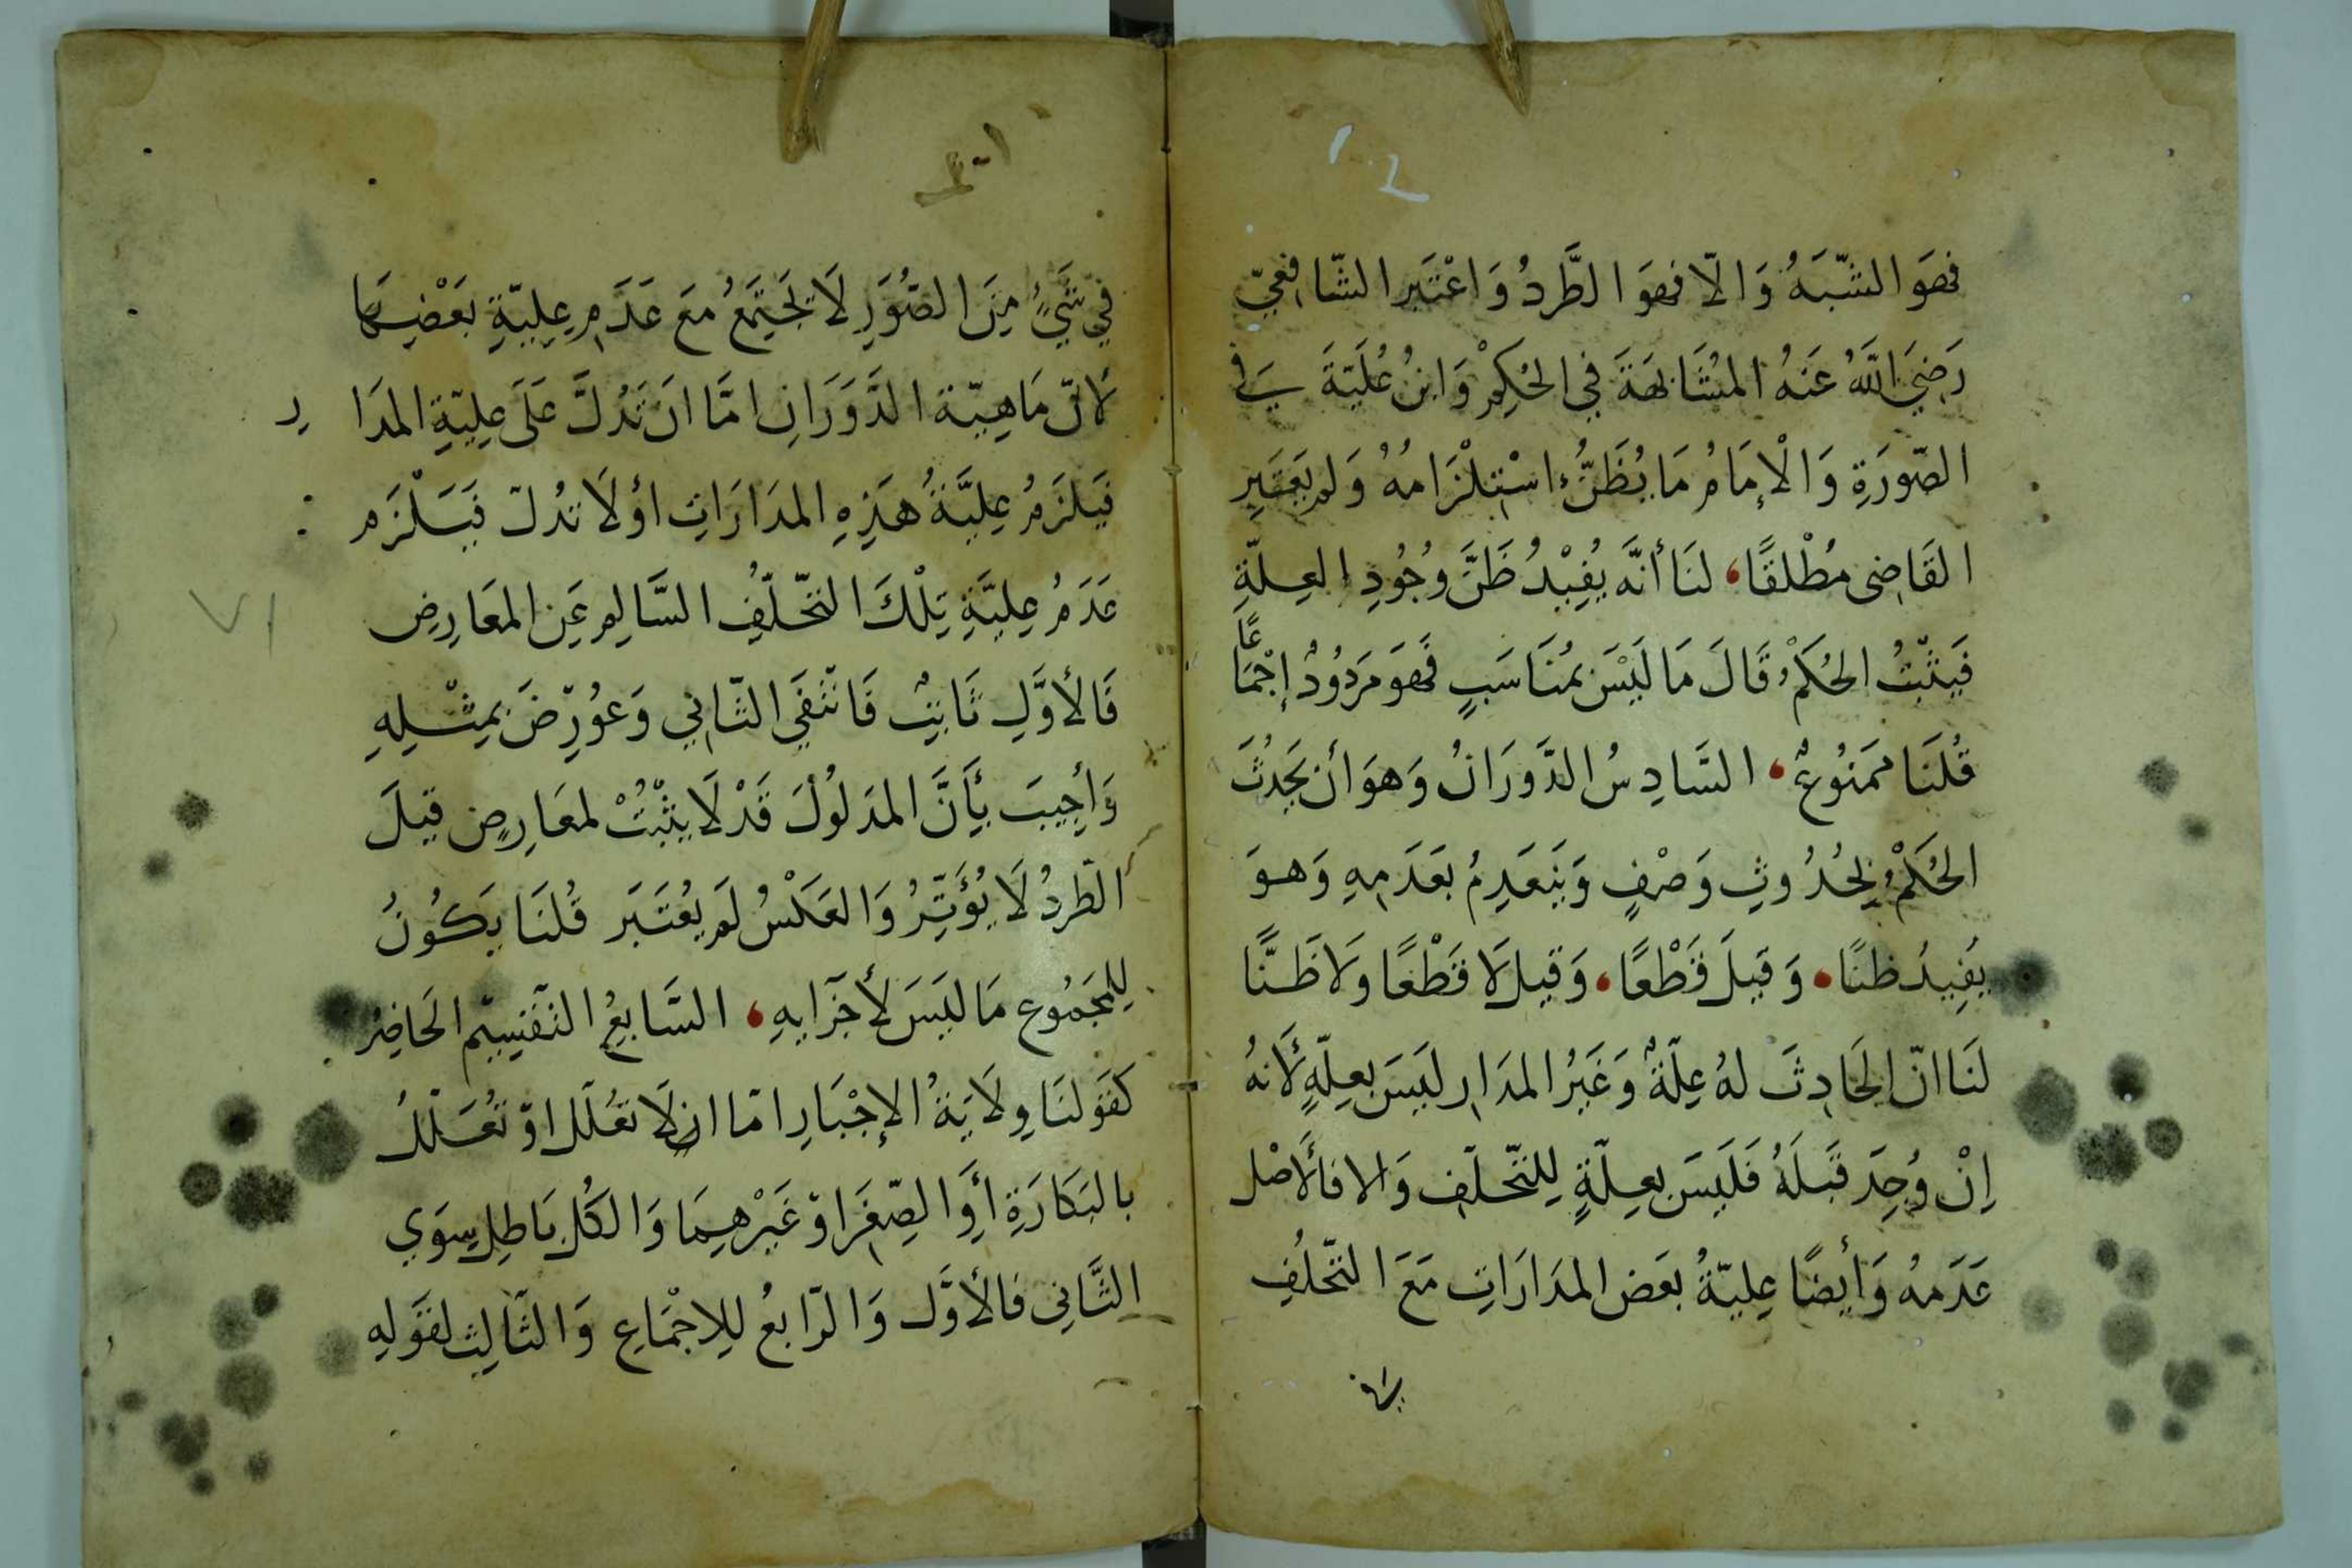 فهَوَ الشَّبَهُ وَالّا فهوَ الطَّردُ وَاعْتَبَر الشّافِعيّ
رَضِيَ اللَّهُ عَنهُ المُشَابَهَةَ فِي الحُكِمْ وَابنُ عُلَيّةَ فِي
الصّورَةِ وَالْإِمَامُ مَا يُظَنُّ اسْتِلْزَامُهُ وَلم يَعْتَبِرِ
القَاضِى مُطْلقًا، لنَا أنَّه يُفِيْدُ ظَنَّ وُجُودِ العِلّةِ
فَيَثبُتُ الحُكَمْ قَالَ مَا لَيْسَ بمُنَاسَبٍ فَهوَ مَردُودٌ إجْمَاعًا
قُلنَا ممَنُوعٌ، السَّادِسُ الدَّورَانُ وَهوَ أن يَحدُثَ
الحُكمْ بِحُدُوثِ وَصْفٍ وَيَنعَدِمُ بعَدَمِهِ وَهوَ
يفِيدُ ظنًا، وَقيلَ قَطْعًا، وَقيل لَا قَطْعًا ولَا ظَنًّا
لنَا انّ الحَادِثَ لهُ عِلّةٌ وَغَيرُ المدَارِ ليَسَ بعِلّةٍ لأَنهُ
إنْ وُجِدَ قَبلَهُ فَليَسَ بعِلّةٍ لِلتّخلّفِ وَالا فالأَصْل
عَدَمهُ وَأيضًا عِليّةُ بعَض المدَارَاتِ مَعَ التّخلُّفِ
في شَيْءٍ مِنَ الصُّوَرِ لَا تَجتَمعُ مَعَ عَدَمِ عِليّةِ بَعْضِهَا
لانّ مَاهِيّة الدَّوَرَانِ امَّا انَ تَدُلَّ عَلَى عِليّةِ المدَار
فَيَلزَمُ عِليَّةُ هَذِهِ المدَارَاتِ اوْلَا تدُلّ فيَلْزَم
عَدَمُ عِليَّةِ تِلْكَ التّخلّفِ السَّالِمِ عَنِ المعَارِضِ
فَالأوَّلِ ثَابِتٌ فَانتَفَي الثّانِي وَعوُرِضَ بمِثْلِهِ
وَأجِيبَ بأَنَّ المدَلوُلَ قَدْ لَا يثْبُتُ لمعَارِضٍ قيلَ
الطّردُ لَا يُؤَثِّرُ وَالعَكَسُ لَم يُعْتَبَر قُلنَا يَكوُنُ
لِلمَجَمُوعِ مَا ليَسَ لأجَزَايِهِ، السَّابِعُ التّقسِيم الحَاصِر
كقَولنَا وِلَايَةُ الإجْبَارِ امّا ان لَا تعُلّل اوّ تعُلّلُ
بالبَكَارَةِ أوَ الصِّغَر اوْ غَيْرهِمَا وَالكُل بَاطِل سِوَي
الثَّانِي فَالأوَّل وَالرّابعُ لِلاِجْمَاعِ وَالثّالِث لقَولِهِ